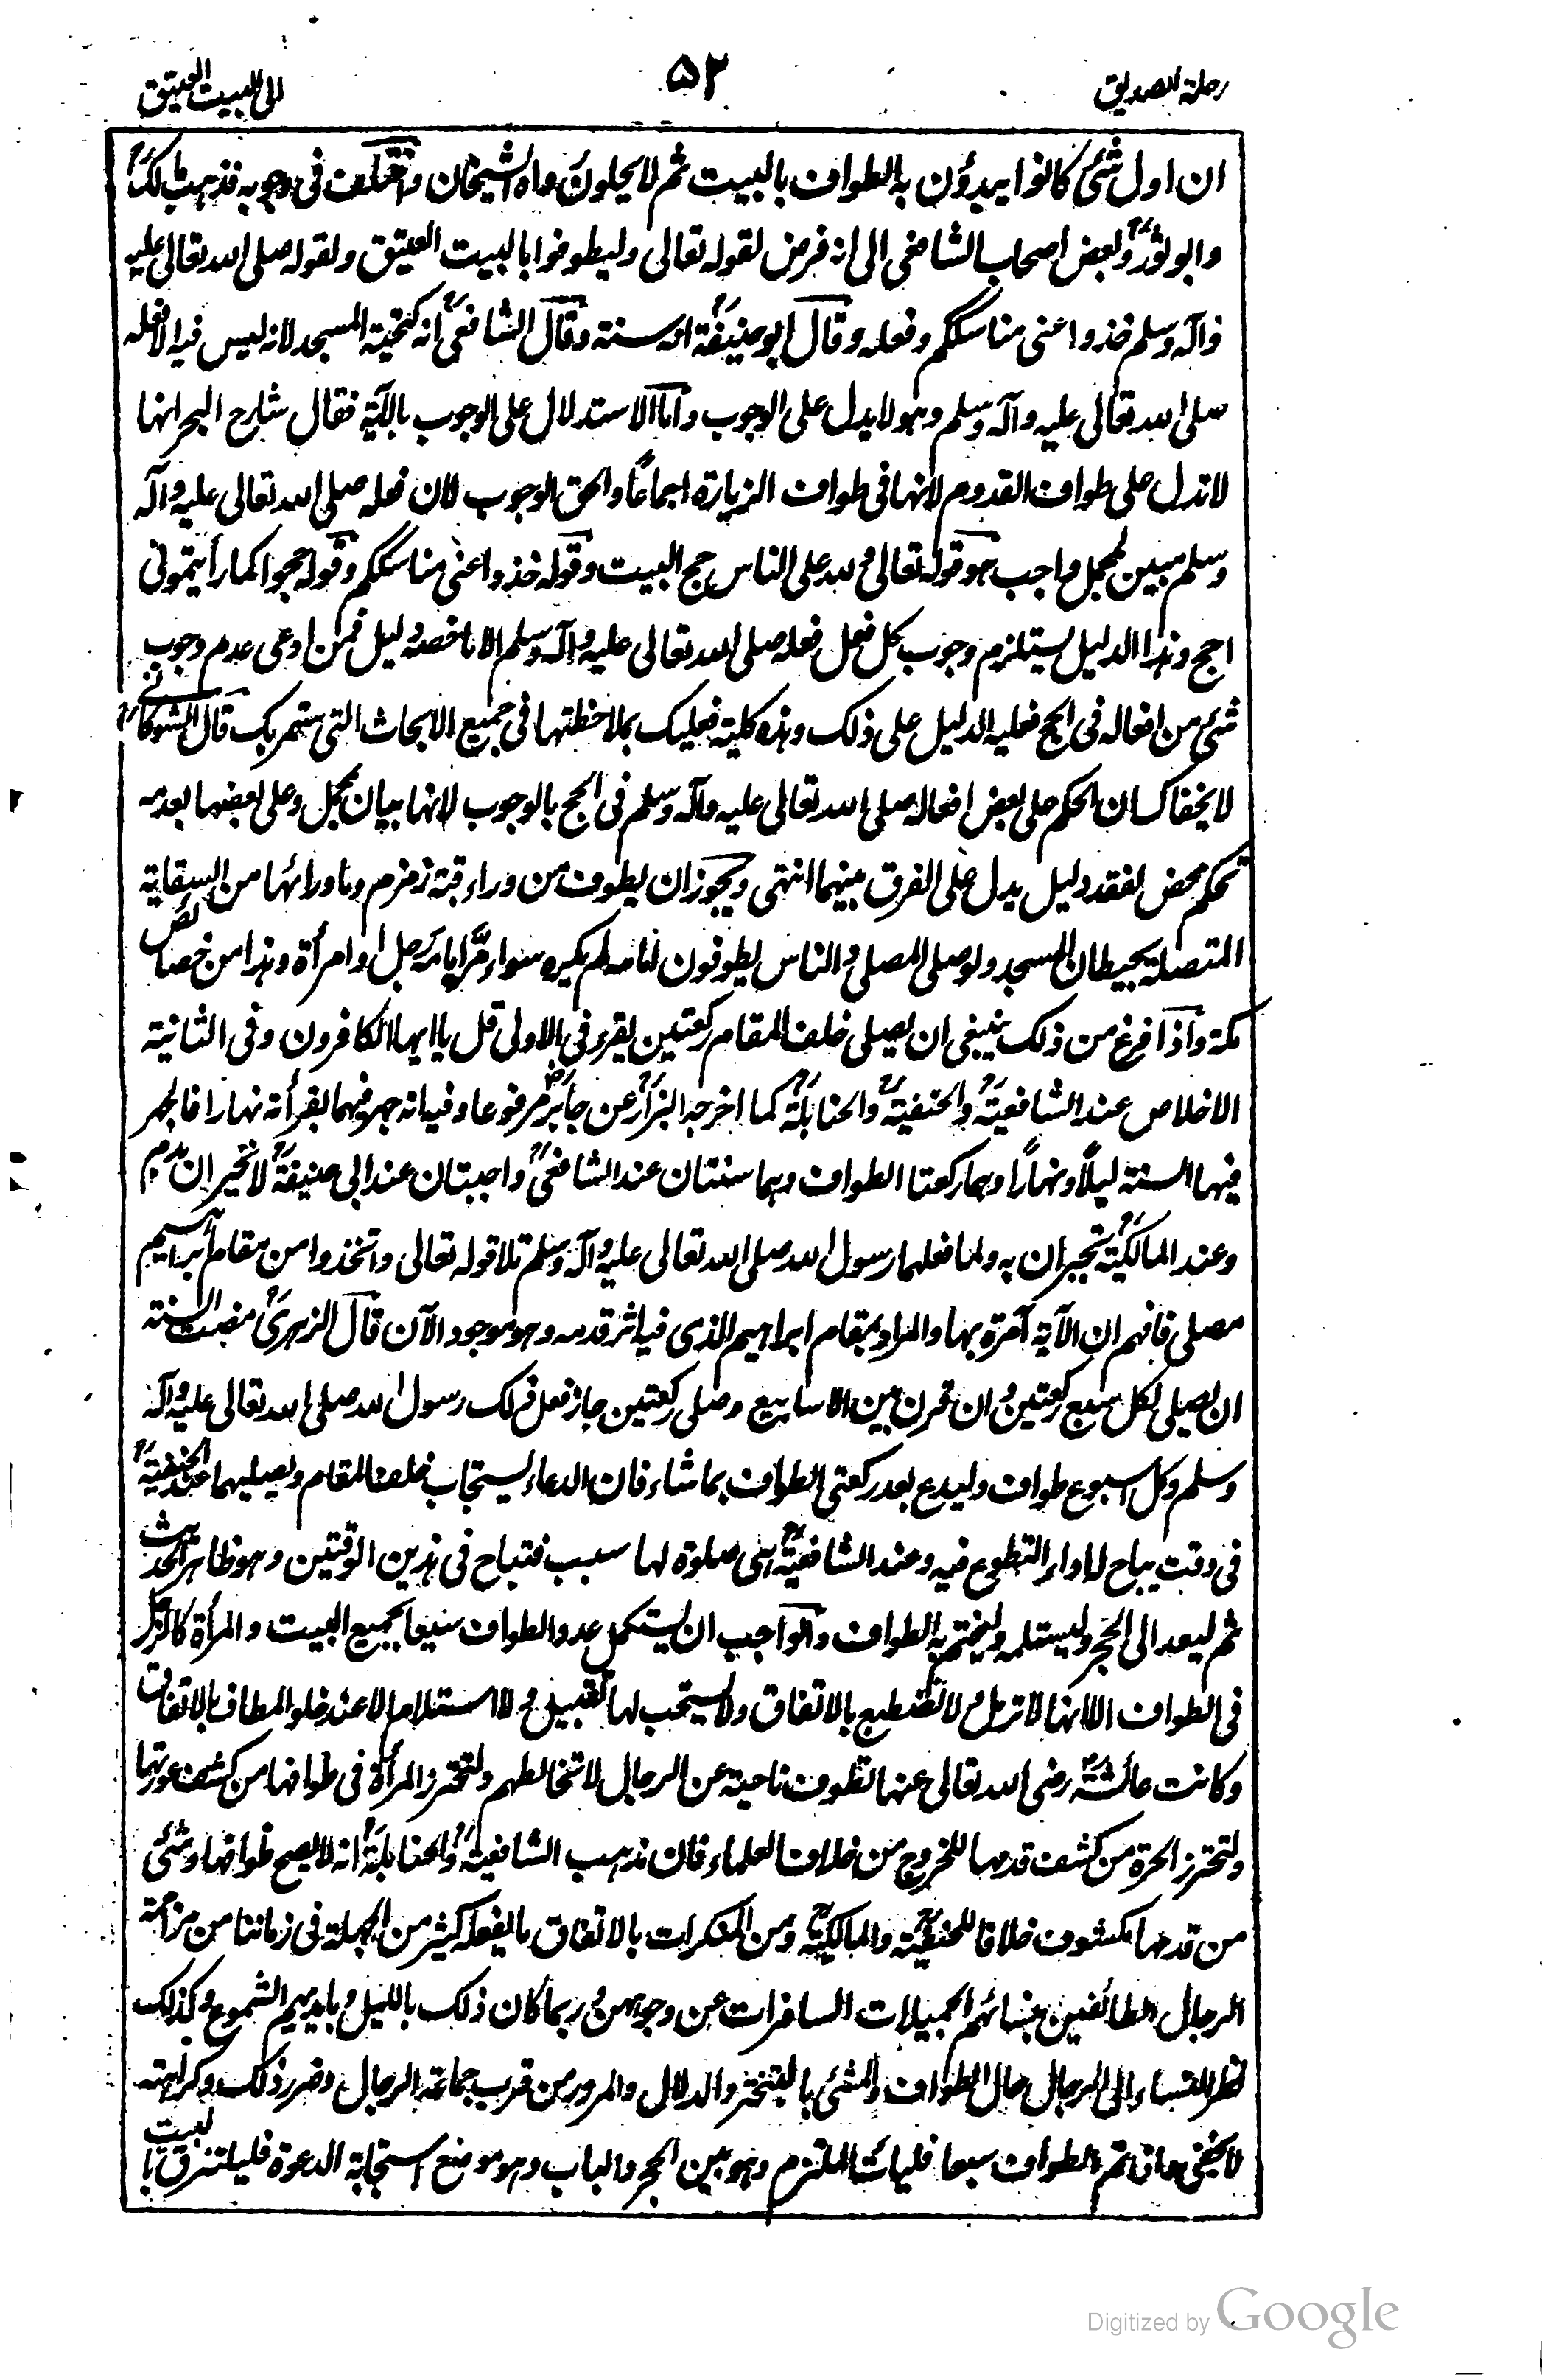 رحلة الصديق
۵۲
الى البيت العتيق
ان اول شئ كانوا يبدؤن به الطواف بالبيت ثم لا يحلون رواه الشيخان واختلف فى وجوبه فذهب مالكؒ
وابو ثورؒ وبعض اصحاب الشافعى الى انه فرض لقوله تعالى وليطوفوا بالبيت العتيق ولقوله صلى الله تعالى عليه
وآله وسلم خذوا عنى مناسككم وفعله وقال ابو حنيفةؒ انه سنة وقال الشافعىؒ انه كتحية المسجد لانه ليس فيه الا فعله
صلى الله تعالى عليه وآله وسلم وهو لا يدل على الوجوب واما الاستدلال على الوجوب بالآية فقال شارح البحر انها
لا تدل على طواف القدوم لانها فى طواف الزيارة اجماعًا والحق الوجوب لان فعله صلى الله تعالى عليه وآله
وسلم مبين لمجمل واجب هو قوله تعالى ولله على الناس حج البيت وقوله خذوا عنى مناسككم وقوله حجوا كما رأيتمونى
احج وهذا الدليل يستلزم وجوب كل فعل فعله صلى الله تعالى عليه وآله وسلم الا ما خصه دليل فمن ادعى عدم وجوب
شئ من افعاله فى الحج فعليه الدليل على ذلك وهذه كلية فعليك بملاحظتها فى جميع الابحاث التى ستمر بك قال الشوكانىؒ
لا يخفاك ان الحكم على بعض افعاله صلى الله تعالى عليه وآله وسلم فى الحج بالوجوب لانها بيان مجمل وعلى بعضها بعدمه
تحكم محض لفقد دليل يدل على الفرق بينهما انتهى ويجوز ان يطوف من وراء قبة زمزم وما ورائها من السقاية
المتصلة بحيطان المسجد ولو صلى المصلى والناس يطوفون امامه لم يكره سواء مرّ امامه رجل او امرأة وهذا من خصائص
مكة واذا فرغ من ذلك ينبغى ان يصلى خلف المقام ركعتين يقرء فى الاولى قل يا ايها الكافرون وفى الثانية
الاخلاص عند الشافعيةؒ والحنفيةؒ والحنابلةؒ كما اخرجه البزارؒ عن جابرؓ مرفوعا وفيه انه جهر فيهما بقرأته نهارا فالجهر
فيها السنة ليلًا ونهارًا وهما ركعتا الطواف وهما سنتان عند الشافعىؒ واجبتان عند ابى حنيفةؒ لا تجبران بدم
وعند المالكيةؒ تجبران به ولما فعلهما رسول الله صلى الله تعالى عليه وآله وسلم تلا قوله تعالى واتخذوا من مقام ابراهيم
مصلى فافهم ان الآية آمرة بها والمراد بمقام ابراهيم الذى فيه اثر قدمه وهو موجود الآن قال الزهرىؒ مضت السنة
ان يصلى لكل سبع ركعتين وان قرن بين الاسابيع وصلى ركعتين جاز فعل ذلك رسول الله صلى الله تعالى عليه وآله
وسلم وكل اسبوع طواف وليدع بعد ركعتى الطواف بما شاء فان الدعاء يستجاب خلف المقام ويصليهما عند الحنفيةؒ
فى وقت يباح له اداء التطوع فيه وعند الشافعيةؒ هى صلوة لها سبب فتباح فى هذين الوقتين وهو ظاهر الحديث
ثم ليعد الى الحجر وليستلمه وليختم به الطواف والواجب ان يستكمل عدد الطواف سبعا بجميع البيت والمرأة كالرجل
فى الطواف الا انها لا ترمل ولا تضطبع بالاتفاق ولا يستحب لها تقبيل ولا استلام الا عند خلو المطاف بالاتفاق
وكانت عائشةؓ رضى الله تعالى عنها تطوف ناحية عن الرجال لا تخالطهم ولتحترز المرأة فى طوافها من كشف عورتها
ولتحترز الحرة من كشف قدمها للخروج من خلاف العلماء فان مذهب الشافعيةؒ والحنابلةؒ انه لا يصح طوافها وشئ
من قدمها مكشوف خلافا للحنفيةؒ والمالكيةؒ ومن المنكرات بالاتفاق ما يفعله كثير من الجهلة فى زماننا من مزاحمة
الرجال الطائفين بنسائهم الجميلات السافرات عن وجوههن وربما كان ذلك بالليل وبايديهم الشموع وكذلك
نظر النساء الى الرجال حال الطواف والمشى بالتبختر والدلال والمرور من قرب جماعة الرجال وضرر ذلك وكراهته
لا يخفى فاذا تم الطواف سبعا فليأت الملتزم وهو بين الحجر والباب وهو موضع استجابة الدعوة فليلتزق بالبيت
Digitized by Google